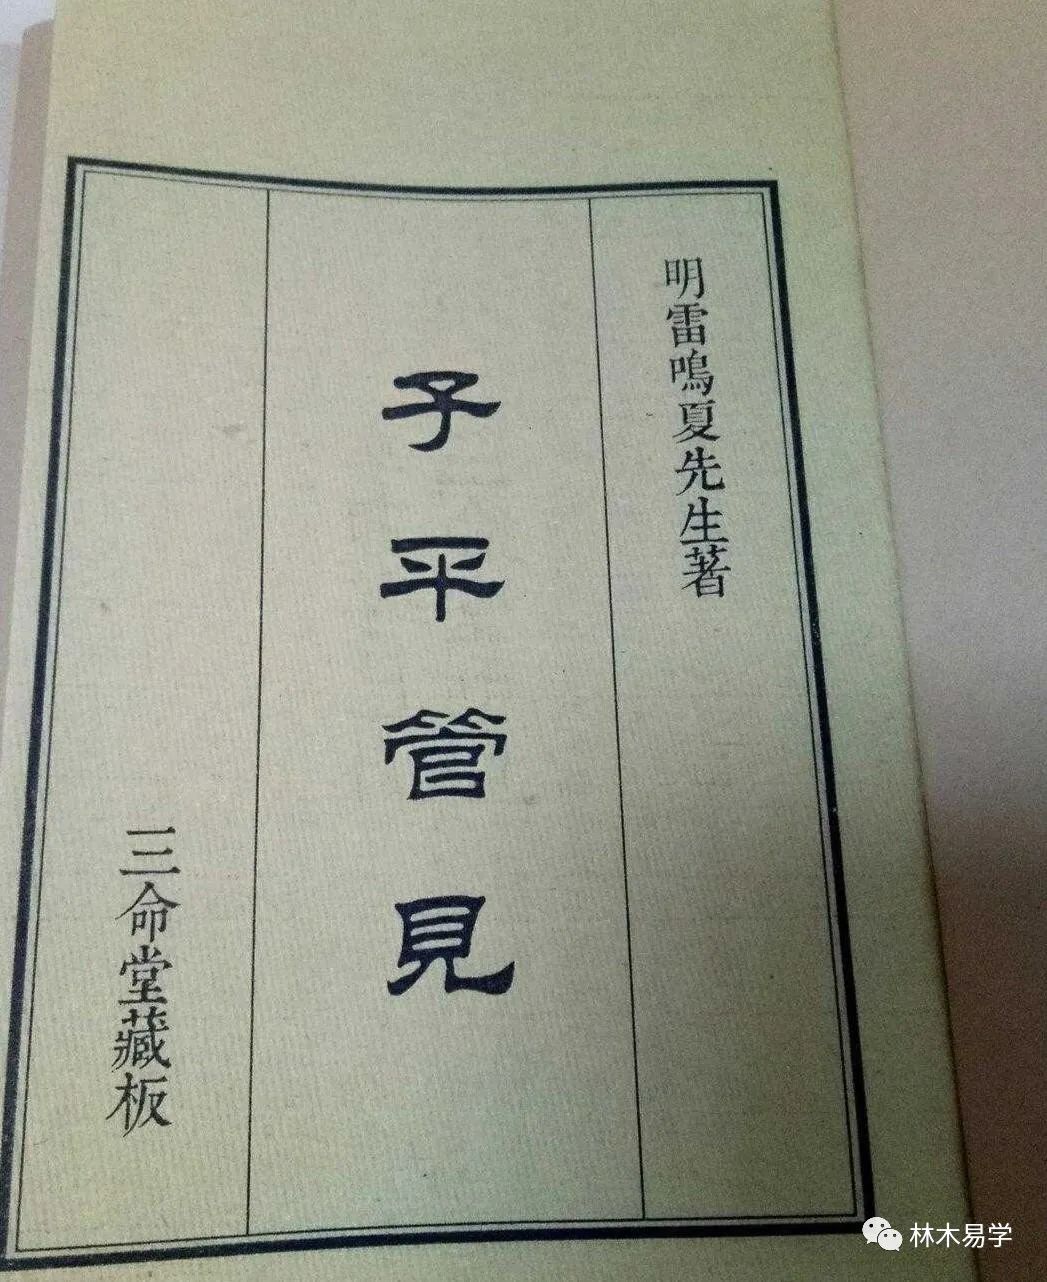 明雷鳴夏先生著
子平管見
三命堂藏板
林木易学